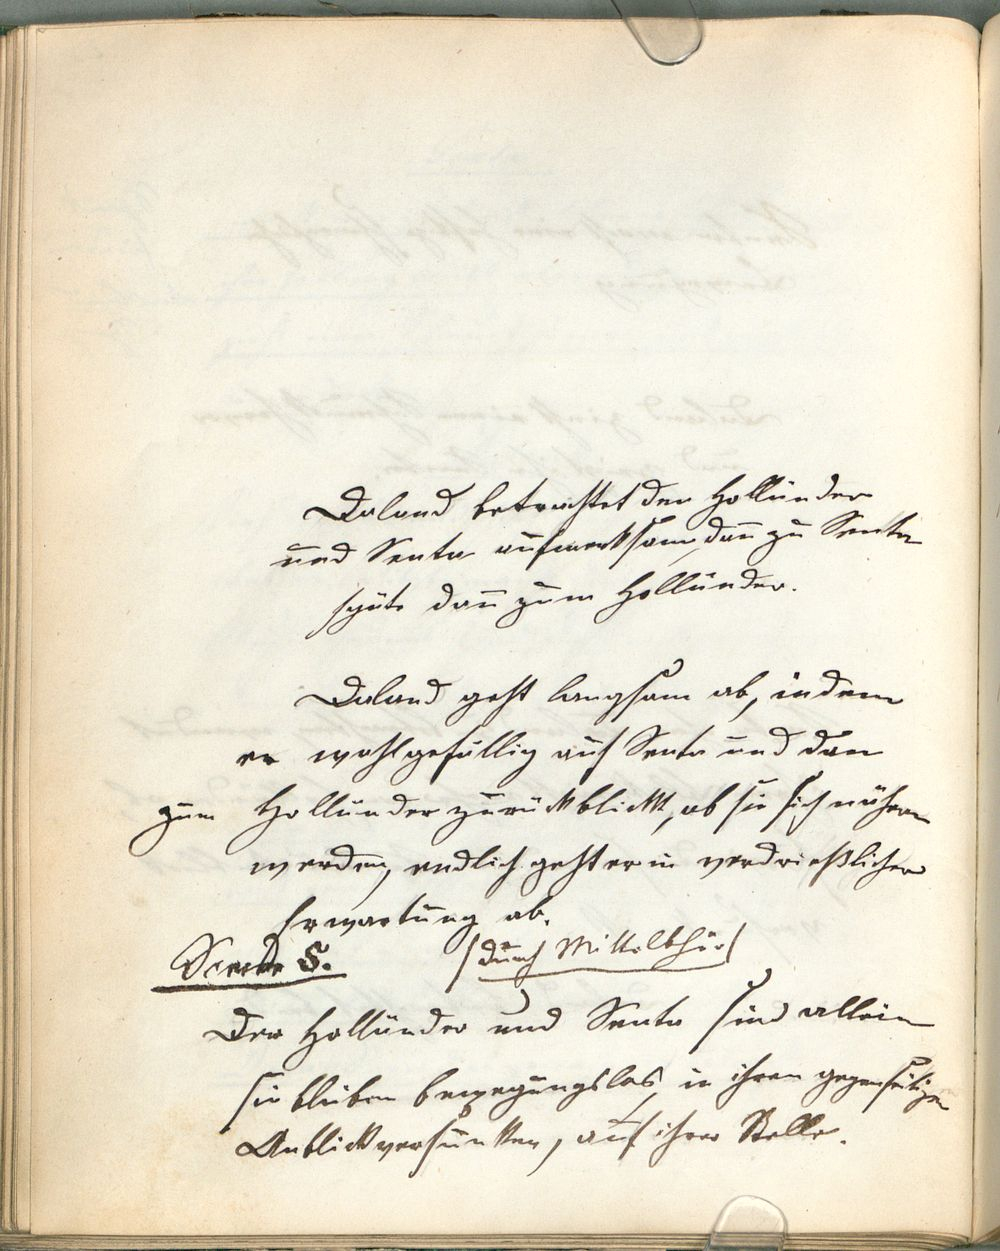 Daland betrachtet den Holländer
und Senta aufmerksam, dan̄ zu Senta
später dan̄ zum Holländer.
Daland geht langsam ab, indem
er wohlgefällig auf Senta und dan
zum Holländer zurückblickt, ob sie sich nähern
werden, endlich geht er in verdrießlicher
Erwartung ab.
Scene 5. (durch Mittelthür)
Der Holländer und Senta sind allein
sie bleiben bewegungslos, in ihren gegenseitigen
Anblick versunken, auf ihrer Stelle.